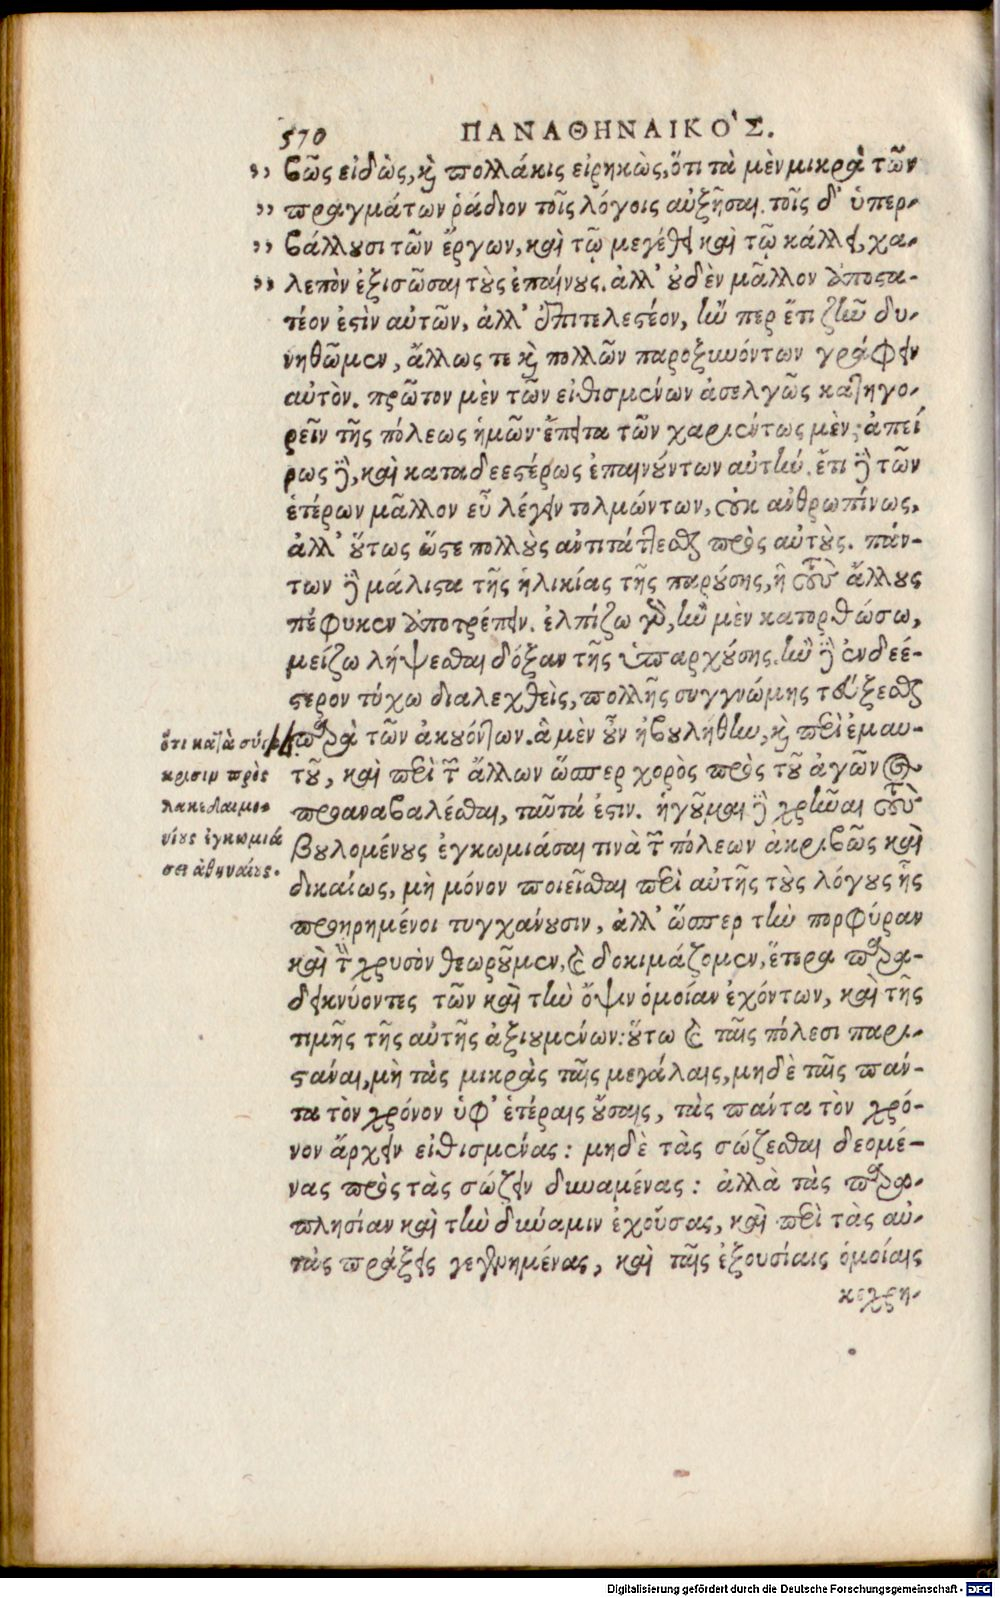 570 ΠΑΝΑΘΗΝΑΙΚΟ'Σ.
,, βῶς εἰδὼς, καὶ πολλάκις εἰρηκὼς, ὅτι τὰ μὲν μικρὰ τῶν
,, πραγμάτων ῥάδιον τοῖς λόγοις αὐξῆσαι. τοῖς δ' ὑπερ-
,, βάλλουσι τῶν ἔργων, καὶ τῷ μεγέθει καὶ τῷ κάλλει, χα-
,, λεπὸν ἐξισῶσαι τοὺς ἐπαίνους. ἀλλ' οὐδὲν μᾶλλον ἀποστα-
τέον ἐστὶν αὐτῶν, ἀλλ' ἐπιτελεστέον, ἤν περ ἔτι ζῆν δυ-
νηθῶμεν, ἄλλως τε καὶ πολλῶν παροξυνόντων γράφειν
αὐτὸν. πρῶτον μὲν τῶν εἰθισμένων ἀσελγῶς κατηγο-
ρεῖν τῆς πόλεως ἡμῶν· ἔπειτα τῶν χαριέντως μὲν, ἀπεί
ρως δὲ, καὶ καταδεεστέρως ἐπαινούντων αὐτήν. ἔτι δὲ τῶν
ἑτέρων μᾶλλον εὖ λέγειν τολμώντων, οὐκ ἀνθρωπίνως,
ἀλλ' οὕτως ὥστε πολλοὺς ἀντιτάττεσθαι πρὸς αὐτούς. πάν-
των δὲ μάλιστα τῆς ἡλικίας τῆς παρούσης, ἣ τοὺς ἄλλους
πέφυκεν ἀποτρέπειν. ἐλπίζω γὰρ, ἢν μὲν κατορθώσω,
μείζω λήψεσθαι δόξαν τῆς ὑπαρχούσης. ἢν δὲ ἐνδεέ-
στερον τύχω διαλεχθεὶς, πολλῆς συγγνώμης τεύξεσθαι
παρὰ τῶν ἀκουόντων. ἃ μὲν οὖν ἠβουλήθην, καὶ περὶ ἐμαυ-
τοῦ, καὶ περὶ τῶν ἄλλων ὥσπερ χορὸς πρὸς τοῦ ἀγῶνος
προαναβαλέσθαι, ταῦτά ἐστιν. ἡγοῦμαι δὲ χρῆναι τοὺς
βουλομένους ἐγκωμιάσαι τινὰ τῶν πόλεων ἀκριβῶς καὶ
δικαίως, μὴ μόνον ποιεῖσθαι περὶ αὐτῆς τοὺς λόγους ἧς
προηρημένοι τυγχάνουσιν, ἀλλ' ὥσπερ τὴν πορφύραν
καὶ τὸν χρυσὸν θεωροῦμεν, καὶ δοκιμάζομεν, ἕτερα παρα-
δεικνύοντες τῶν καὶ τὴν ὄψιν ὁμοίαν ἐχόντων, καὶ τῆς
τιμῆς τῆς αὐτῆς ἀξιουμένων: οὕτω καὶ ταῖς πόλεσι παρι-
στάναι, μὴ τὰς μικρὰς ταῖς μεγάλαις, μηδὲ ταῖς πάν-
τα τὸν χρόνον ὑφ' ἑτέραις οὔσαις, τὰς πάντα τὸν χρό-
νον ἄρχειν εἰθισμένας: μηδὲ τὰς σώζεσθαι δεομέ-
νας πρὸς τὰς σώζειν δυναμένας: ἀλλὰ τὰς παρα-
πλησίαν καὶ τὴν δύναμιν ἐχούσας, καὶ περὶ τὰς αὐ-
τὰς πράξεις γεγενημένας, καὶ ταῖς ἐξουσίαις ὁμοίαις
κεχρη-
ὅτι κατὰ σύγ
κρισιν πρὸς
λακεδαιμο-
νίους ἐγκωμιά
σει ἀθηναίους.
Digitalisierung gefördert durch die Deutsche Forschungsgemeinschaft - DFG